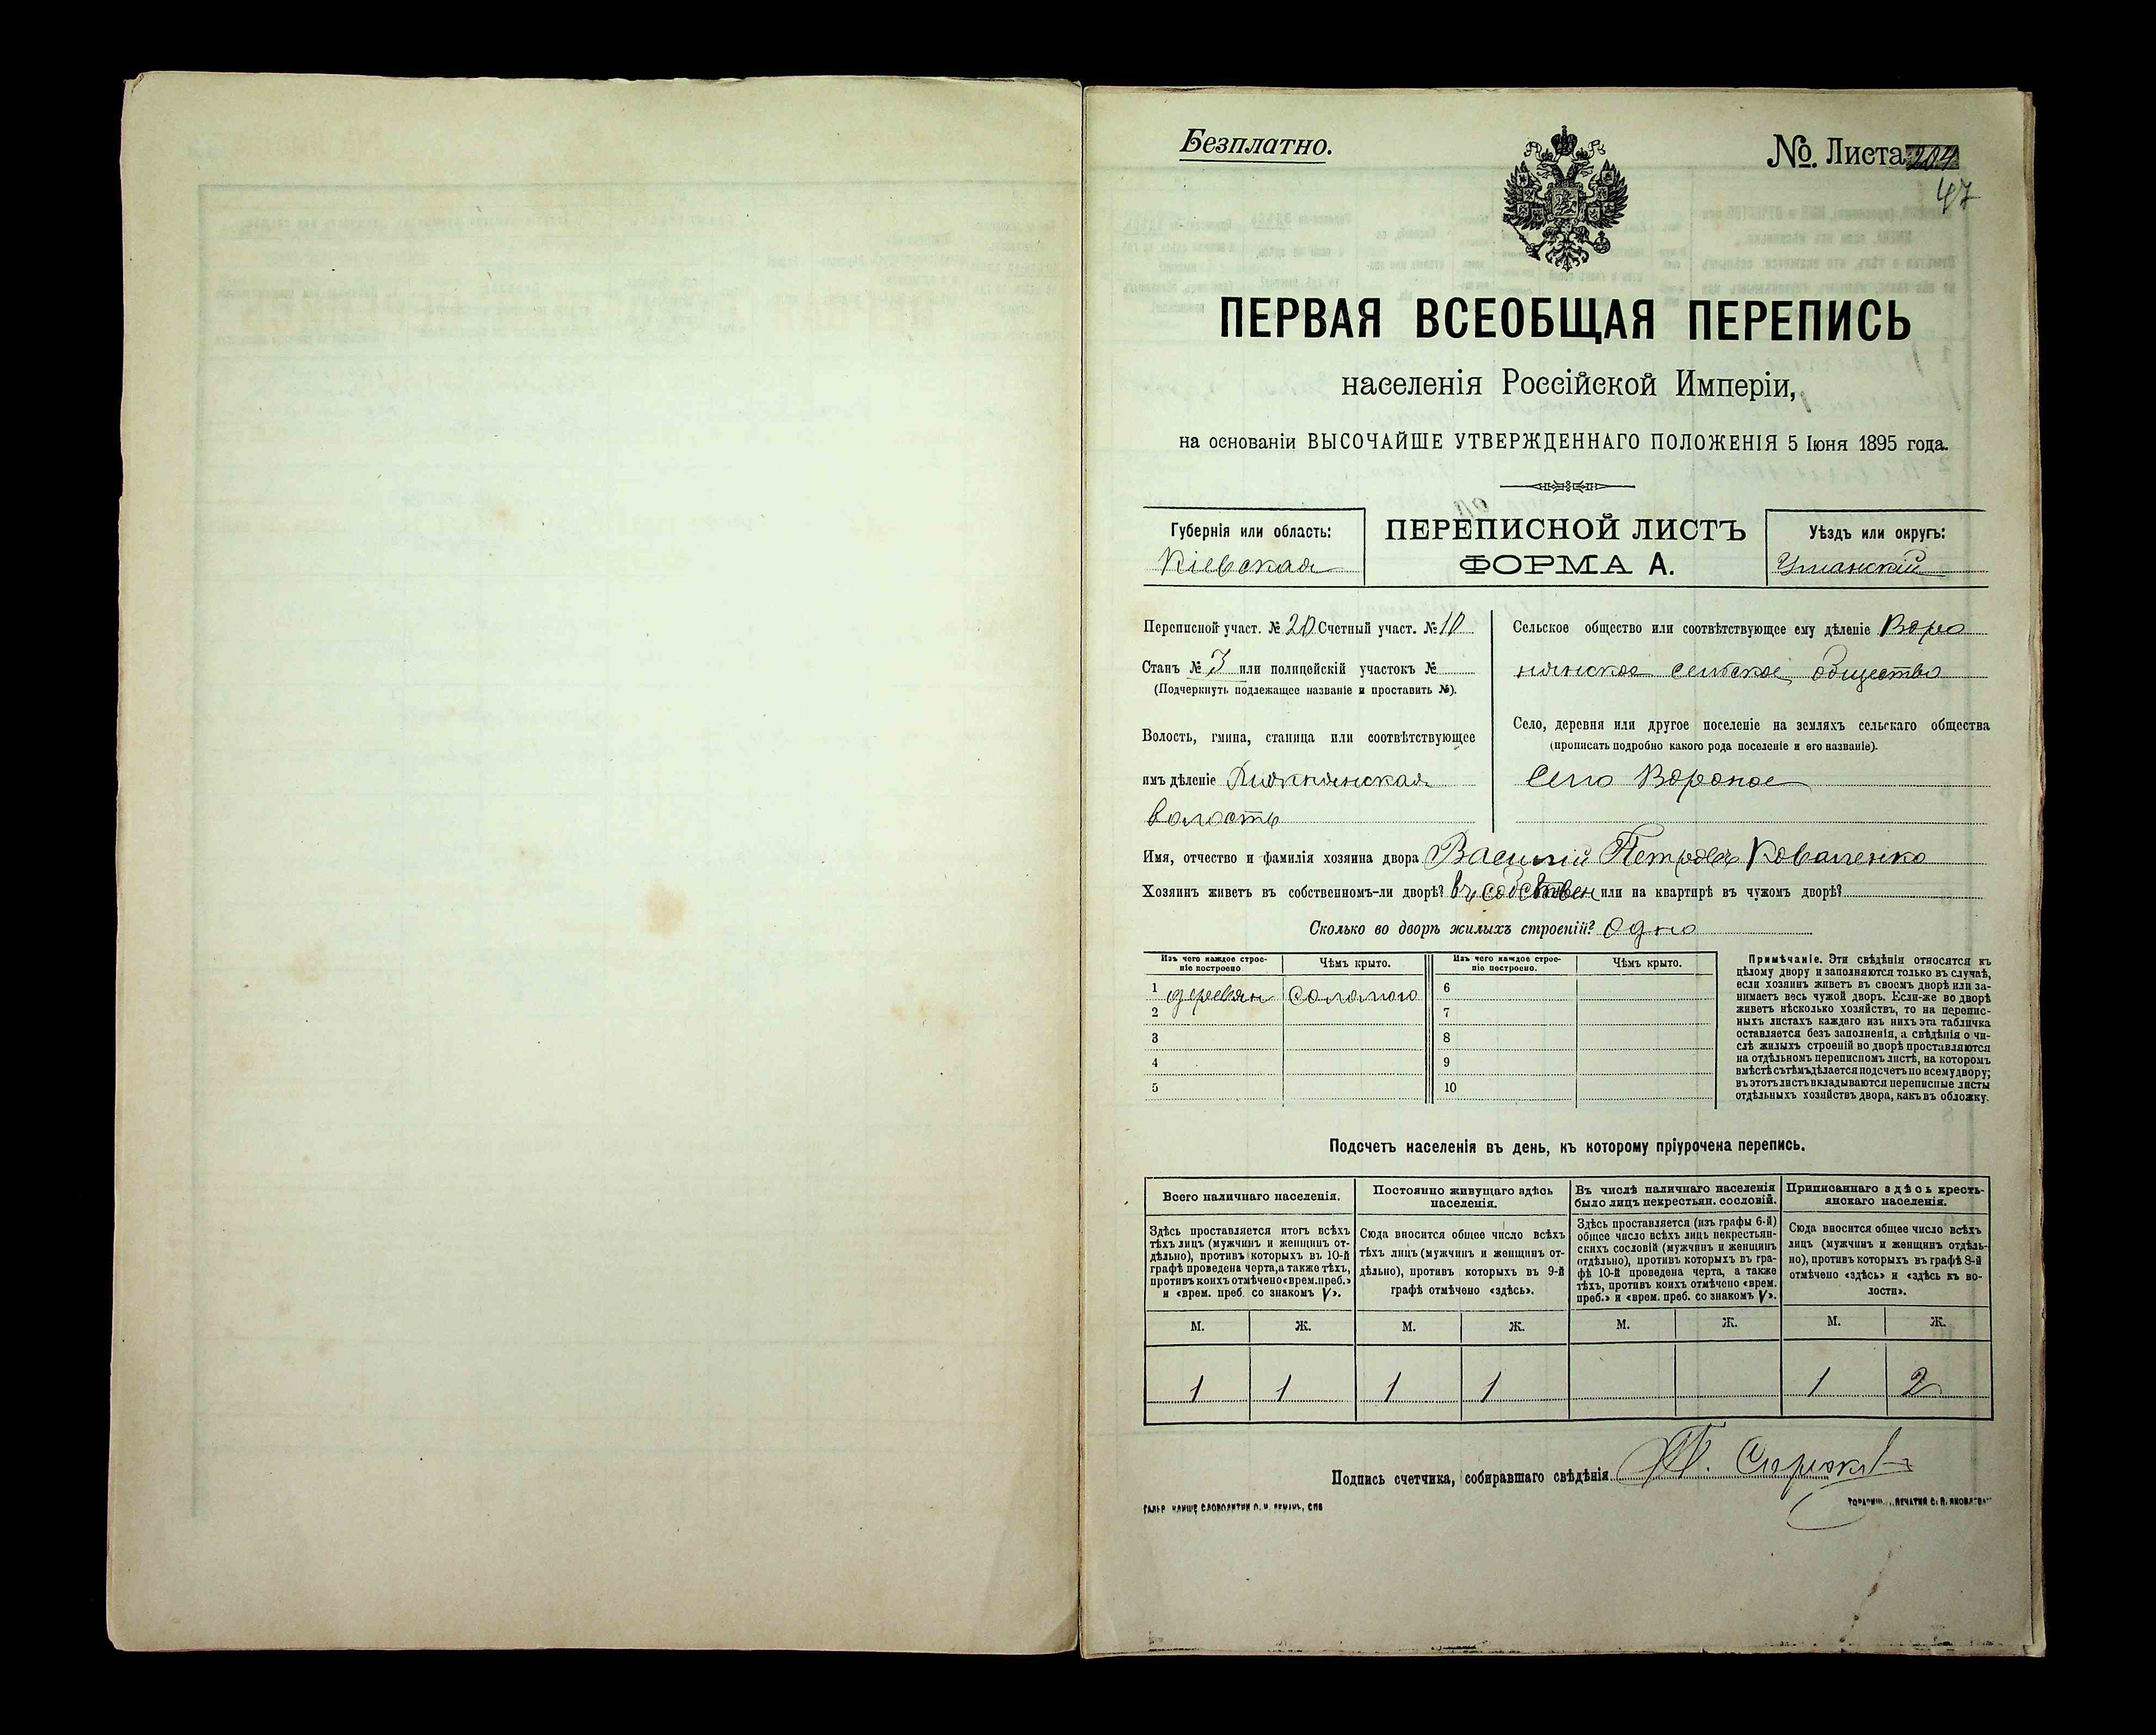 Безплатно.
№. Листа 204
47
ПЕРВАЯ ВСЕОБЩАЯ ПЕРЕПИСЬ
населенія Россійской Имперіи,
на основаніи ВЫСОЧАЙШЕ УТВЕРЖДЕННАГО ПОЛОЖЕНІЯ 5 Іюня 1895 года.
Губернія или область:
Кіевская
ПЕРЕПИСНОЙ ЛИСТЪ
ФОРМА А.
Уѣздъ или округъ:
Уманскій
Переписной участ. № 20 Счетный участ. № 10
Станъ № 3 или полицейскій участокъ №
(Подчеркнуть подлежащее названіе и проставить №).
Волость, гмина, станица или соотвѣтствующее
имъ дѣленіе
волость
Сельское общество или соотвѣтствующее ему дѣленіе Воро
нянское сельское общество
Село, деревня или другое поселеніе на земляхъ сельскаго общества
(прописать подробно какого рода поселеніе и его названіе).
Село Вороное
Имя, отчество и фамилія хозяина двора Василій Петровъ Коваленко
Хозяинъ живетъ въ собственномъ-ли дворѣ? въ собствен или на квартирѣ въ чужомъ дворѣ?
Сколько во дворѣ жилыхъ строеній? Одно
Изъ чего каждое строе-
ніе построено
Чѣмъ крыто.
Изъ чего каждое строе-
ніе построено.
Чѣмъ крыто.
1 деревян Соломою 6
2 7
3 8
4 9
5 10
Примѣчаніе. Эти свѣдѣнія относятся къ
цѣлому двору и заполняются только въ случаѣ,
если хозяинъ живетъ въ своемъ дворѣ или за-
нимаетъ весь чужой дворъ. Если-же во дворѣ
живетъ нѣсколько хозяйствъ, то на перепис-
ныхъ листахъ каждаго изъ нихъ эта табличка
оставляется безъ заполненія, а свѣдѣнія о чи-
слѣ жилыхъ строеній во дворѣ проставляются
на отдѣльномъ переписномъ листѣ, на которомъ
вмѣстѣ съ тѣмъ дѣлается подсчетъ по всему двору;
въ этотъ листъ вкладываются переписные листы
отдѣльныхъ хозяйствъ двора, какъ въ обложку.
Подсчетъ населенія въ день, къ которому пріурочена перепись.
Всего наличнаго населенія.
Здѣсь проставляется итогъ всѣхъ
тѣхъ лицъ (мужчинъ и женщинъ от-
дѣльно), противъ которыхъ въ 10-й
графѣ проведена черта, а также тѣхъ,
противъ коихъ отмѣчено «врем. преб.»
и «врем. преб. со знакомъ V».
Постоянно живущаго здѣсь
населенія.
Сюда вносится общее число всѣхъ
тѣхъ лицъ (мужчинъ и женщинъ от-
дѣльно), противъ которыхъ въ 9-й
графѣ отмѣчено «здѣсь».
Въ числѣ наличнаго населенія
было лицъ некрестьян. сословій.
Здѣсь проставляется (изъ графы 6-й)
общее число всѣхъ лицъ некрестьян-
скихъ сословій (мужчинъ и женщинъ
отдѣльно), противъ которыхъ въ гра-
фѣ 10-й проведена черта, а также
тѣхъ, противъ коихъ отмѣчено «врем.
преб.» и «врем. преб. со знакомъ V».
Приписаннаго здѣсь кресть-
янскаго населенія.
Сюда вносится общее число всѣхъ
лицъ (мужчинъ и женщинъ отдѣль-
но), противъ которыхъ въ графѣ 8-й
отмѣчено «здѣсь» и «здѣсь къ во-
лости».
М. Ж. М. Ж. М. Ж. М. Ж.
1 1 1 1 1 2
Подпись счетчика, собиравшаго свѣдѣнія